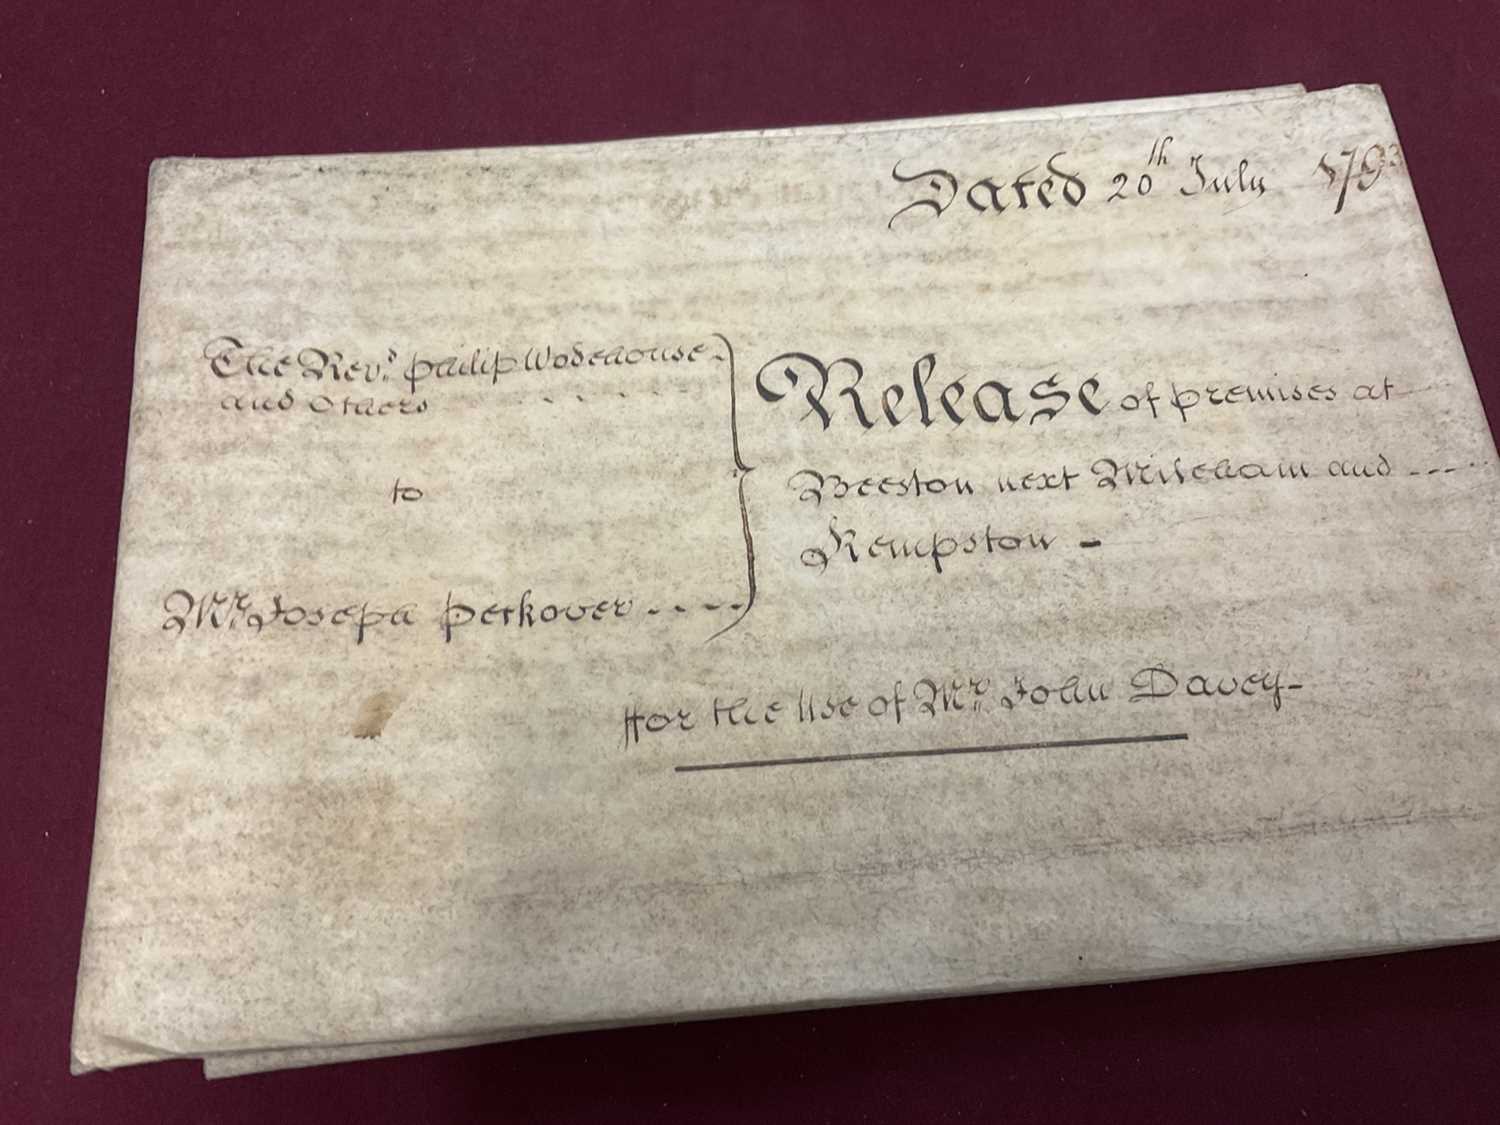 Dated 20th July 1793
The Revd. Philip Wodehouse
and Others
to
Mr. Joseph Peckover
Release of premises at
Beeston next Mileham and
Kempston
ffor the Use of Mr. John Davey